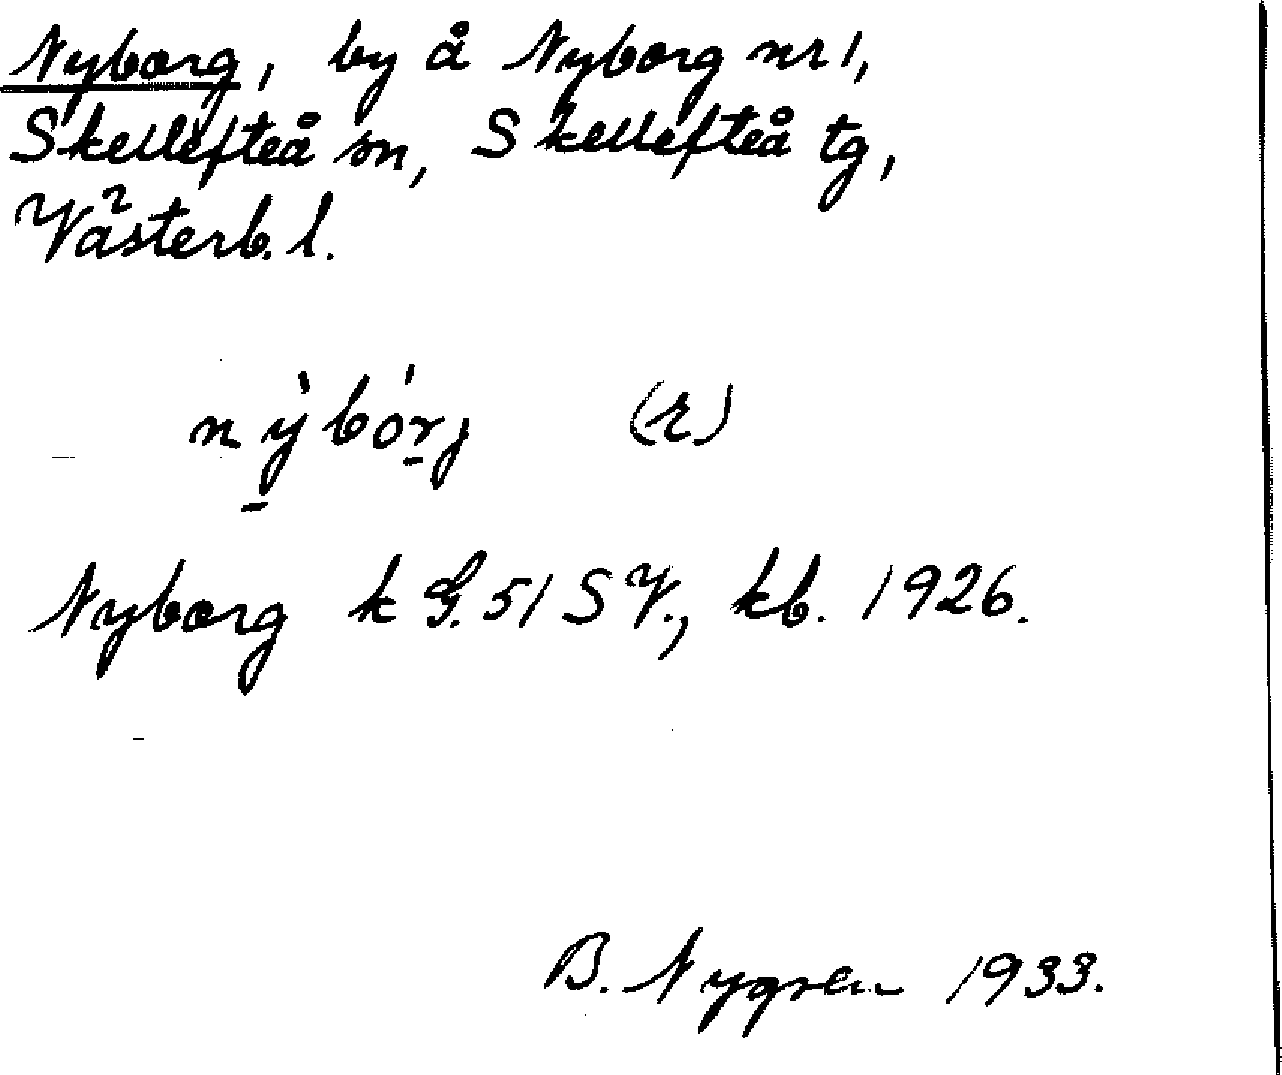 Nyborg, by å Nyborg nr 1,
Skellefteå sn, Skellefteå tg,
Västerb. l.
nỳ̠bór̠j (r)
Nyborg k G. 51 SV., kb. 1926.
B. Nygren 1933.